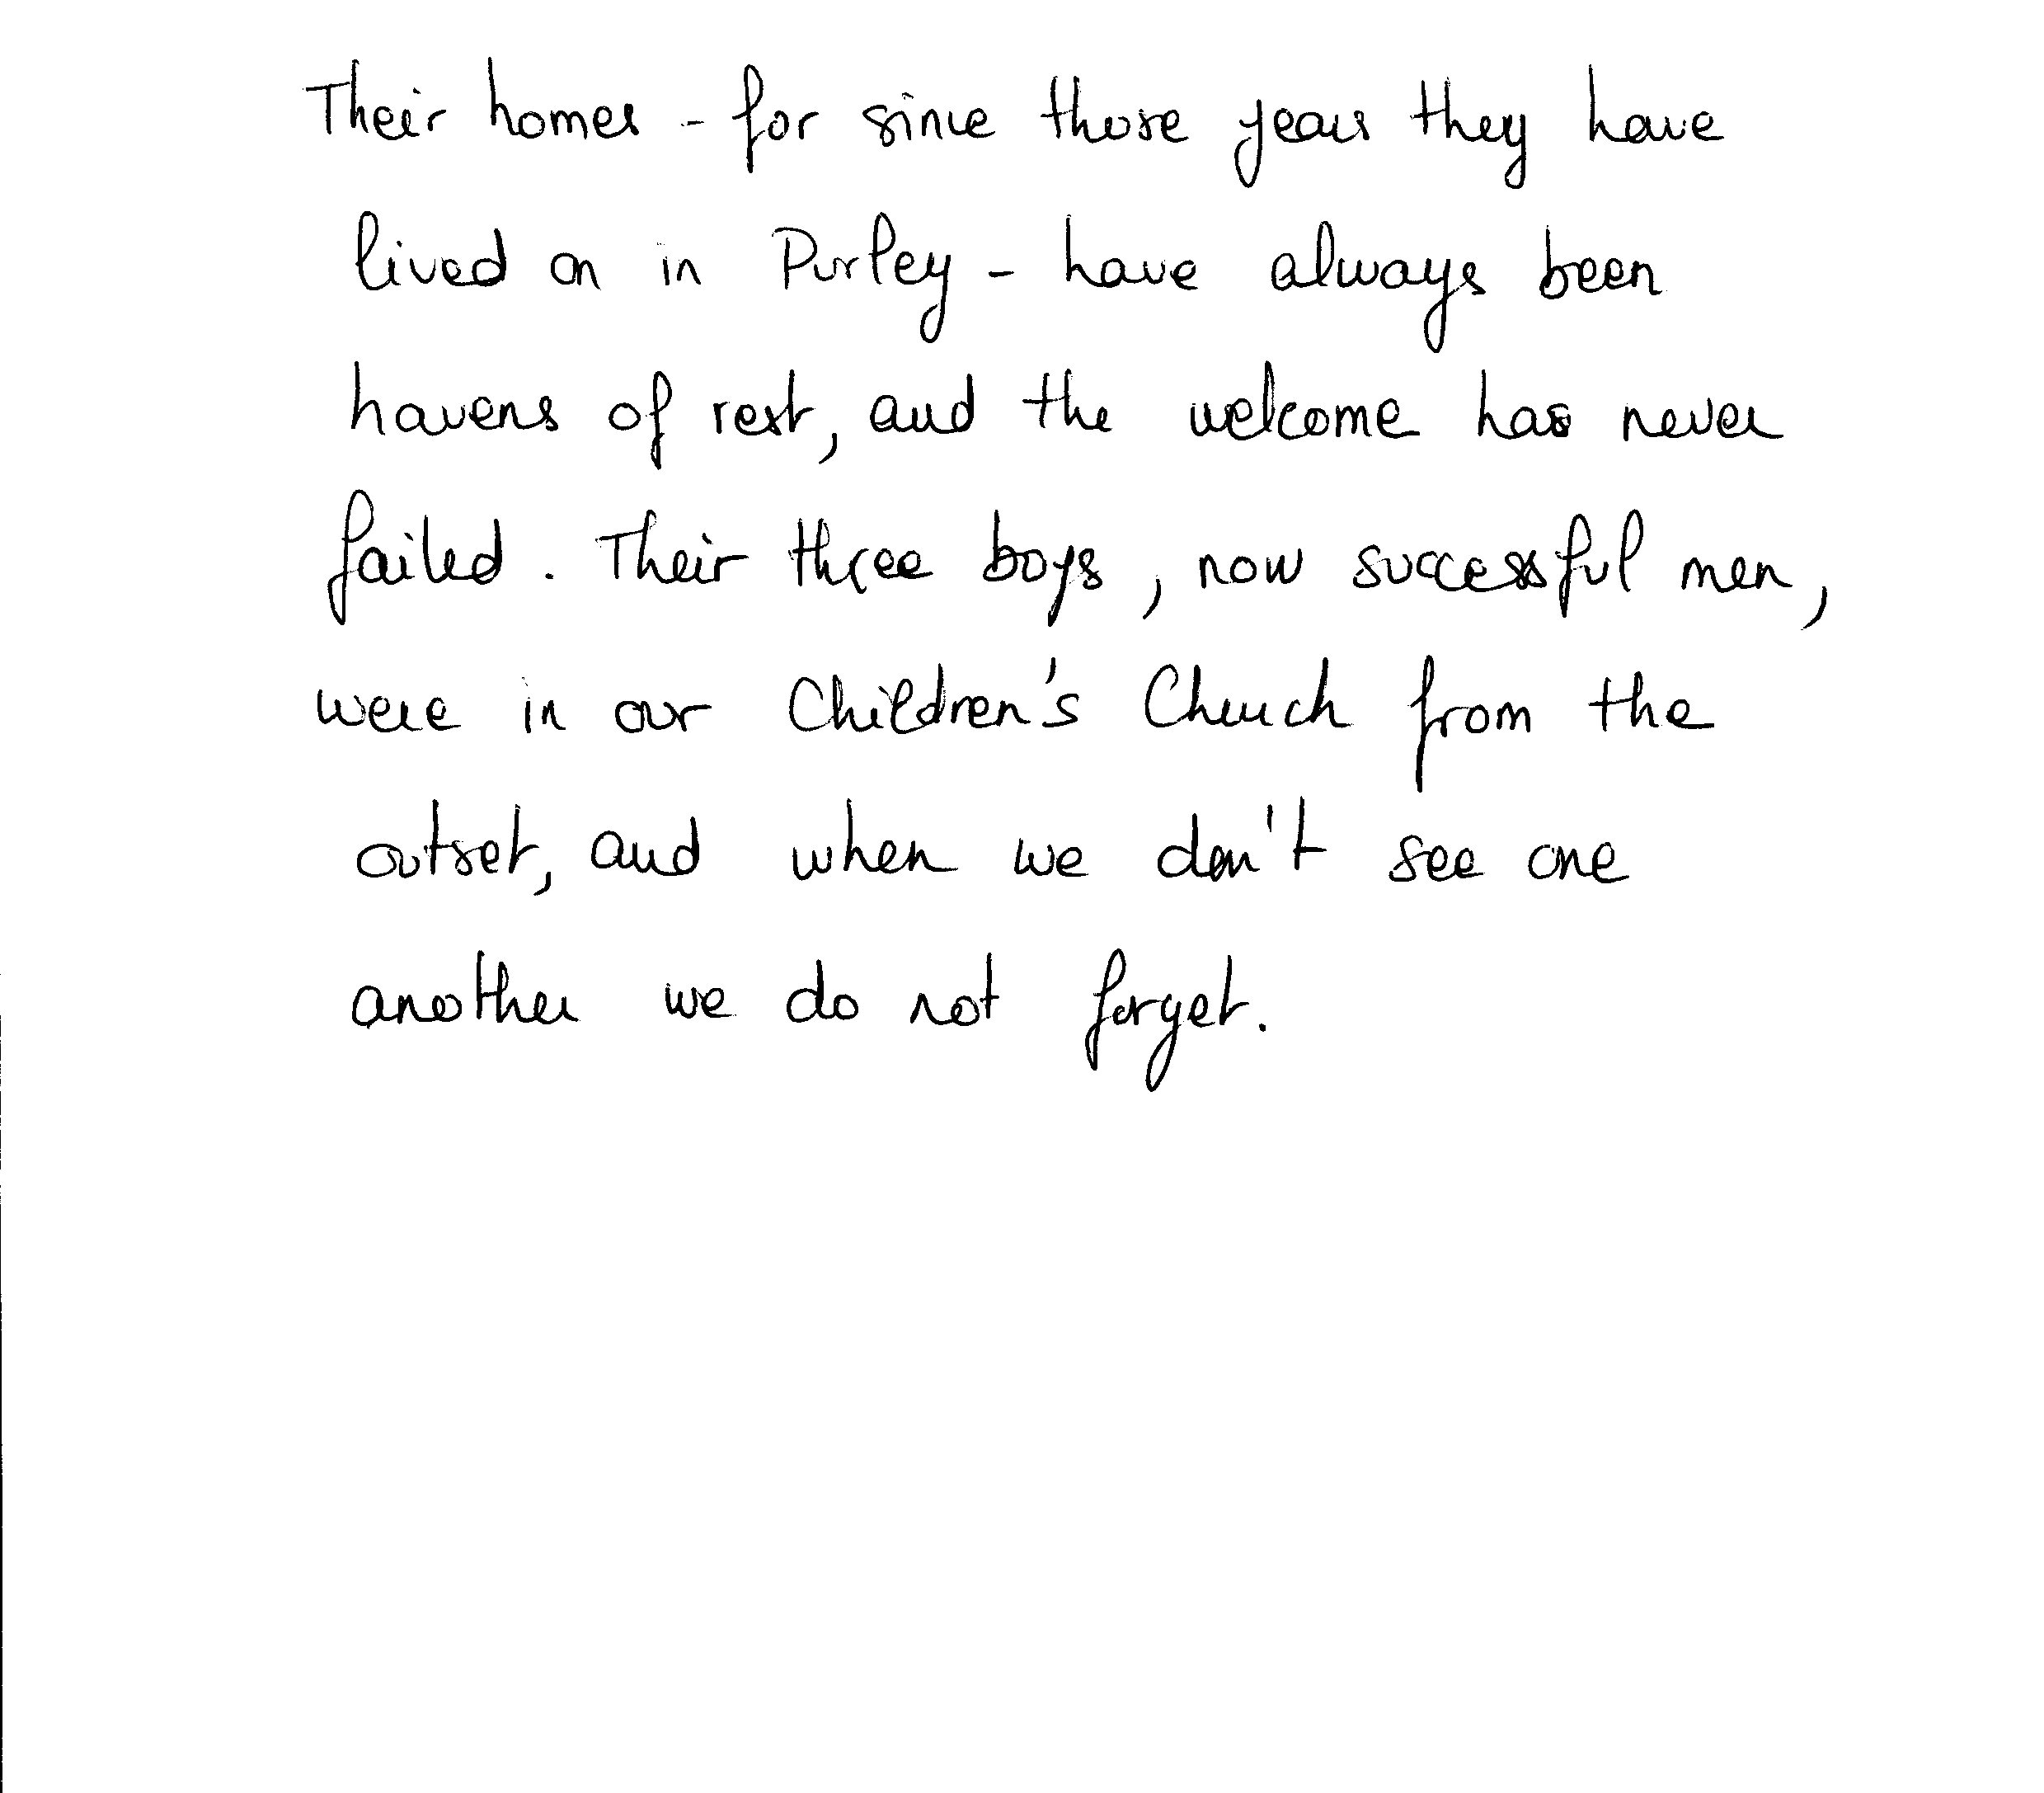 Their homes - for since those years they have
lived on in Purley - have always been
havens of rest, and the welcome has never
failed. Their three boys, now successful men,
were in our Children's Church from the
outset, and when we don't see one
another we do not forget.